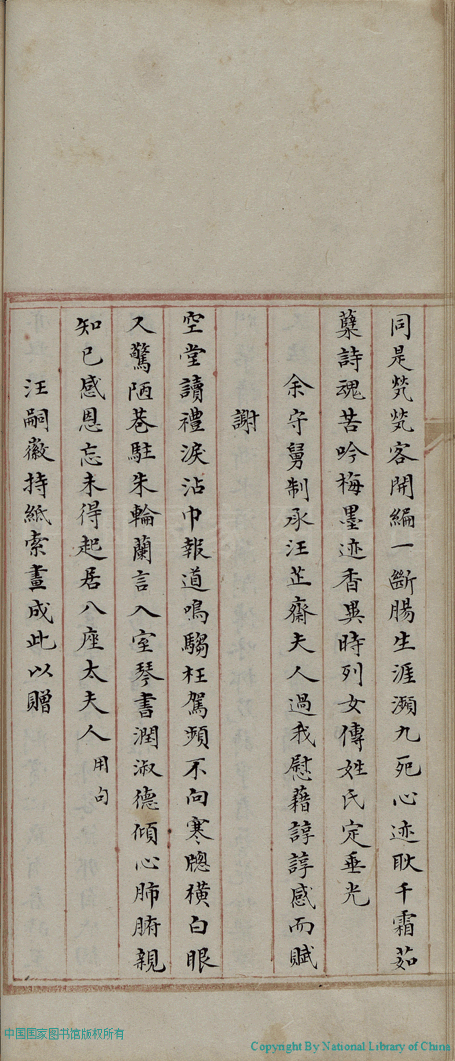 同是煢煢客開編一斷腸生涯瀕九死心迹耿千霜茹
蘖詩魂苦吟梅墨迹香異時列女傳姓氏定垂光
余守舅制承汪芷齋夫人過我慰藉諄諄感而賦
謝
空堂讀禮淚沾巾報道鳴騶枉駕頻不向寒牕橫白眼
又驚陋巷駐朱輪蘭言入室琴書潤淑德傾心肺腑親
知己感恩忘未得起居八座太夫人用句
汪嗣徽持紙索畫成此以贈
中国国家图书馆版权所有
Copyright By National Library of China